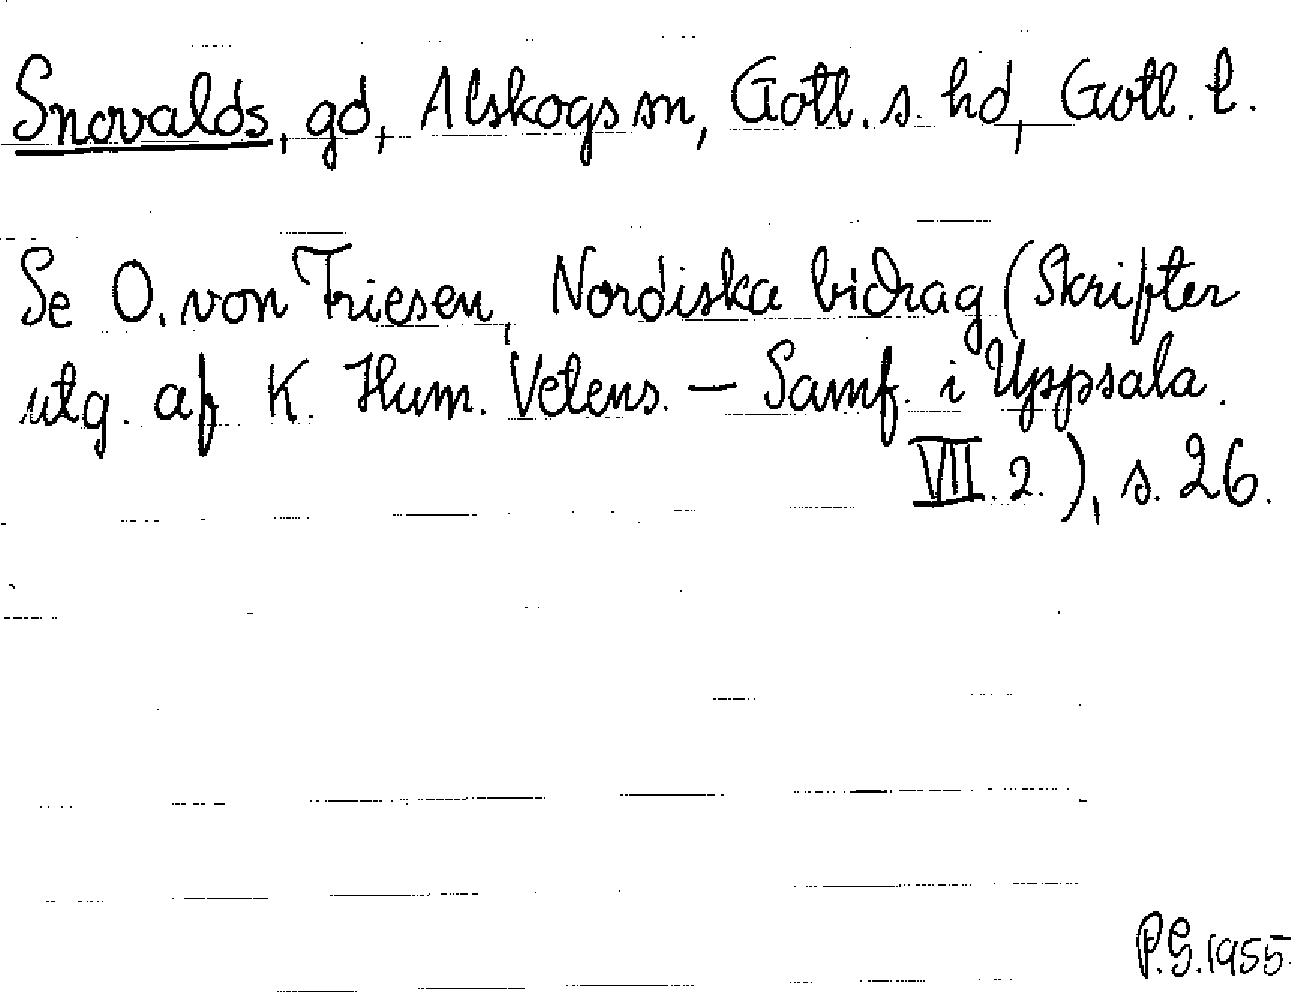 Snovalds, gd, Alskogs sn, Gotl. s. hd, Gotl. l.
Se O. von Friesen, Nordiska bidrag (Skrifter
utg. af K. Hum. Vetens. – Samf. i Uppsala.
VII. 2.), s. 26.
P.G. 1955.